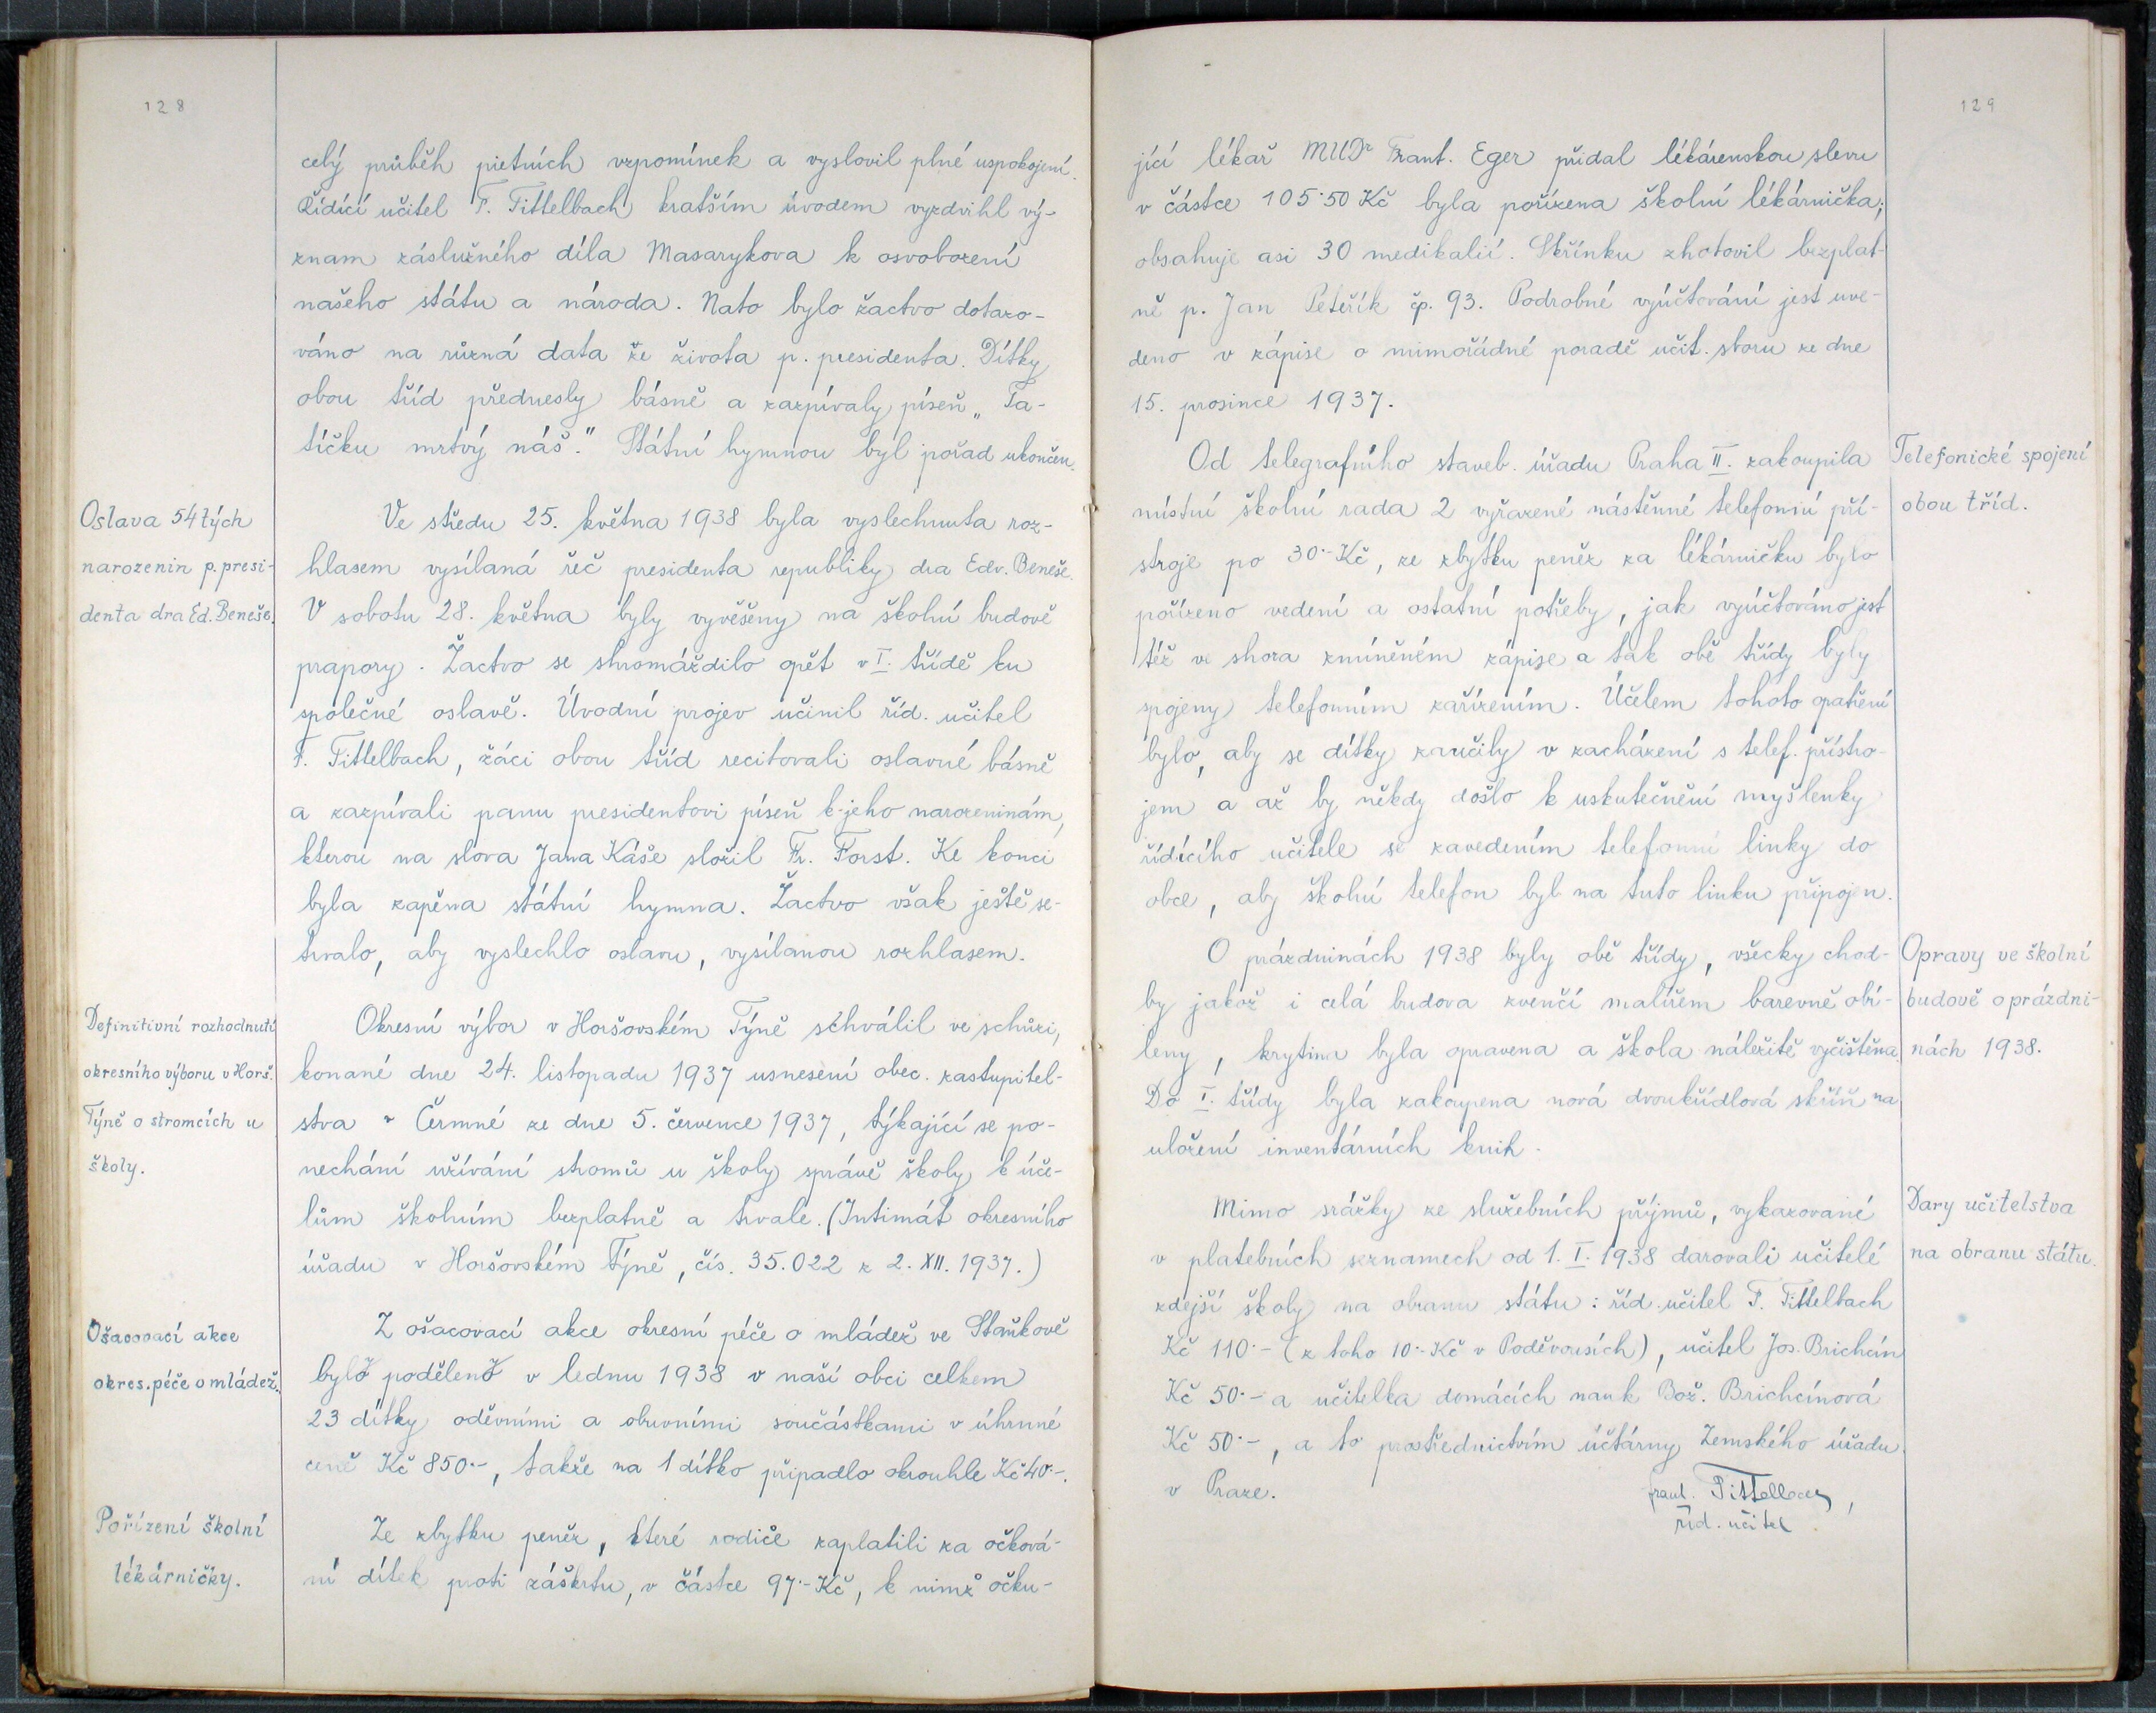 128
celý průběh pietních vzpomínek a vyslovil plné uspokojení.
Řídící učitel F. Tittelbach kratším úvodem vyzdvihl vý-
znam záslužného díla Masarykova k osvobození
našeho státu a národa. Nato bylo žactvo dotazo-
váno na různá data ze života p. presidenta. Dítky
obou tříd přednesly básně a zazpívaly píseň „Ta-
tíčku mrtvý náš." Státní hymnou byl pořad ukončen.
Oslava 54tých
narozenin p. presi-
denta dra Ed. Beneše.
Ve středu 25. května 1938 byla vyslechnuta roz-
hlasem vysílaná řeč presidenta republiky dra Edv. Beneše.
V sobotu 28. května byly vyvěšeny na školní budově
prapory. Žactvo se shromáždilo opět v I. třídě ku
společné oslavě. Úvodní projev učinil říd. učitel
F. Tittelbach, žáci obou tříd recitovali oslavné básně
a zazpívali panu presidentovi píseň k jeho narozeninám,
kterou na slova Jana Káše složil Fr. Forst. Ke konci
byla zapěna státní hymna. Žactvo však ještě se-
trvalo, aby vyslechlo oslavu, vysílanou rozhlasem.
Definitivní rozhodnutí
okresního výboru v Horš.
Týně o stromcích u
školy.
Okresní výbor v Horšovském Týně schválil ve schůzi,
konané dne 24. listopadu 1937 usnesení obec. zastupitel-
stva v Čermné ze dne 5. července 1937, týkající se po-
nechání užívání stromů u školy správě školy k úče-
lům školním bezplatně a trvale. (Intimát okresního
úřadu v Horšovském Týně, čís. 35.022 z 2. XII. 1937.)
Ošacovací akce
okres. péče o mládež.
Z ošacovací akce okresní péče o mládež ve Staňkově
bylo poděleno v lednu 1938 v naší obci celkem
23 dítky oděvními a obuvními součástkami v úhrnné
ceně Kč 850·-, takže na 1 dítko připadlo okrouhle Kč 40·-.
Pořízení školní
lékárničky.
Ze zbytku peněz, které rodiče zaplatili za očková-
ní dítek proti záškrtu, v částce 97·- Kč, k nimž očku-
129
jící lékař MUDr Frant. Eger přidal lékárenskou slevu
v částce 105·50 Kč byla pořízena školní lékárnička;
obsahuje asi 30 medikalií. Skřínku zhotovil bezplat-
ně p. Jan Peteřík čp. 93. Podrobné vyúčtování jest uve-
deno v zápise o mimořádné poradě učit. sboru ze dne
15. prosince 1937.
Telefonické spojení
obou tříd.
Od telegrafního staveb. úřadu Praha II. zakoupila
místní školní rada 2 vyřazené nástěnné telefonní pří-
stroje po 30·- Kč, ze zbytku peněz za lékárničku bylo
pořízeno vedení a ostatní potřeby, jak vyúčtováno jest
též ve shora zmíněném zápise a tak obě třídy byly
spojeny telefonním zařízením. Účelem tohoto opatření
bylo, aby se dítky zaučily v zacházení s telef. přístro-
jem a až by někdy došlo k uskutečnění myšlenky
řídícího učitele se zavedením telefonní linky do
obce, aby školní telefon byl na tuto linku připojen.
Opravy ve školní
budově o prázdni-
nách 1938.
O prázdninách 1938 byly obě třídy, všecky chod-
by jakož i celá budova zvenčí malířem barevně obí-
leny, krytina byla opravena a škola náležitě vyčištěna.
Do I. třídy byla zakoupena nová dvoukřídlová skříň na
uložení inventárních knih.
Dary učitelstva
na obranu státu.
Mimo srážky ze služebních příjmů, vykazované
v platebních seznamech od 1. I. 1938 darovali učitelé
zdejší školy na obranu státu: říd. učitel F. Tittelbach
Kč 110·- (z toho 10·- Kč v Poděvousích), učitel Jos. Brichcín
Kč 50·- a učitelka domácích nauk Bož. Brichcínová
Kč 50·-, a to prostřednictvím účtárny Zemského úřadu
v Praze.
Frant. Tittelbach,
říd. učitel.